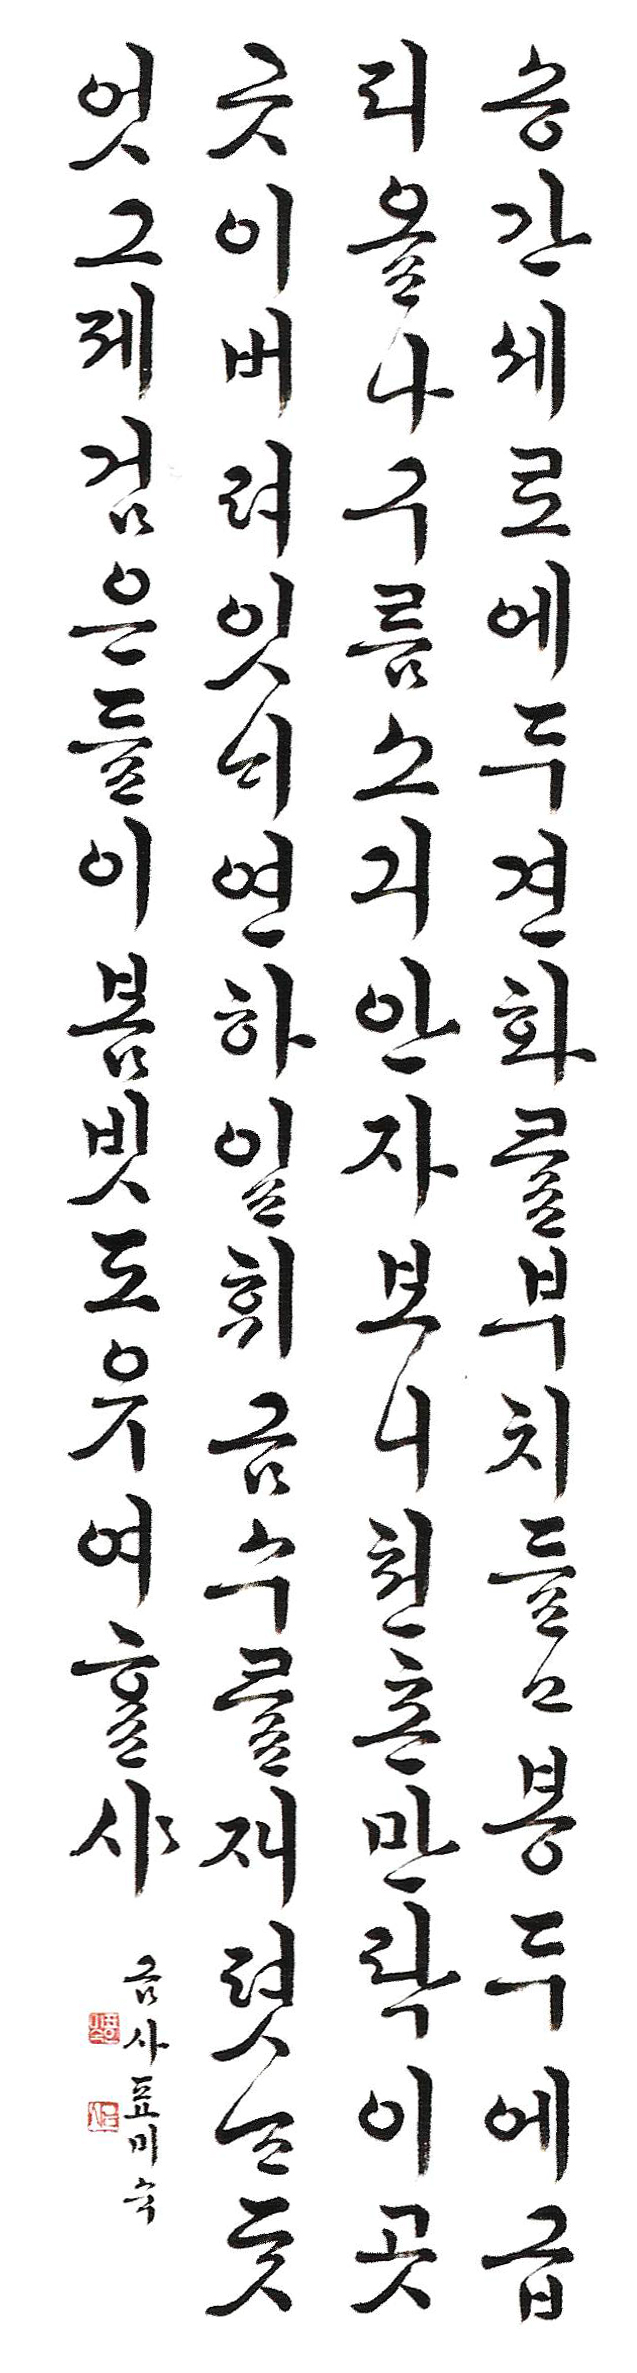 송간세로에두견화를부치들고봉두에급
피올나구름소긔안자보니천촌만락이곳
긋이버려잇늬연하일휘금수를재폇는듯
엇그제검은들이봄빗도유여흘샤
금사표미숙